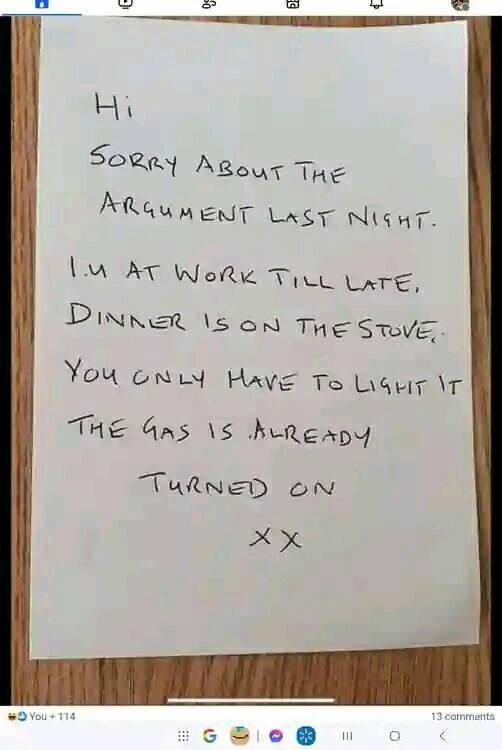 Hi
SORRY ABOUT THE
ARGUMENT LAST NIGHT.
I.M AT WORK TILL LATE,
DINNER IS ON THE STOVE,
YOU ONLY HAVE TO LIGHT IT
THE GAS IS ALREADY
TURNED ON
XX
You + 114
13 comments